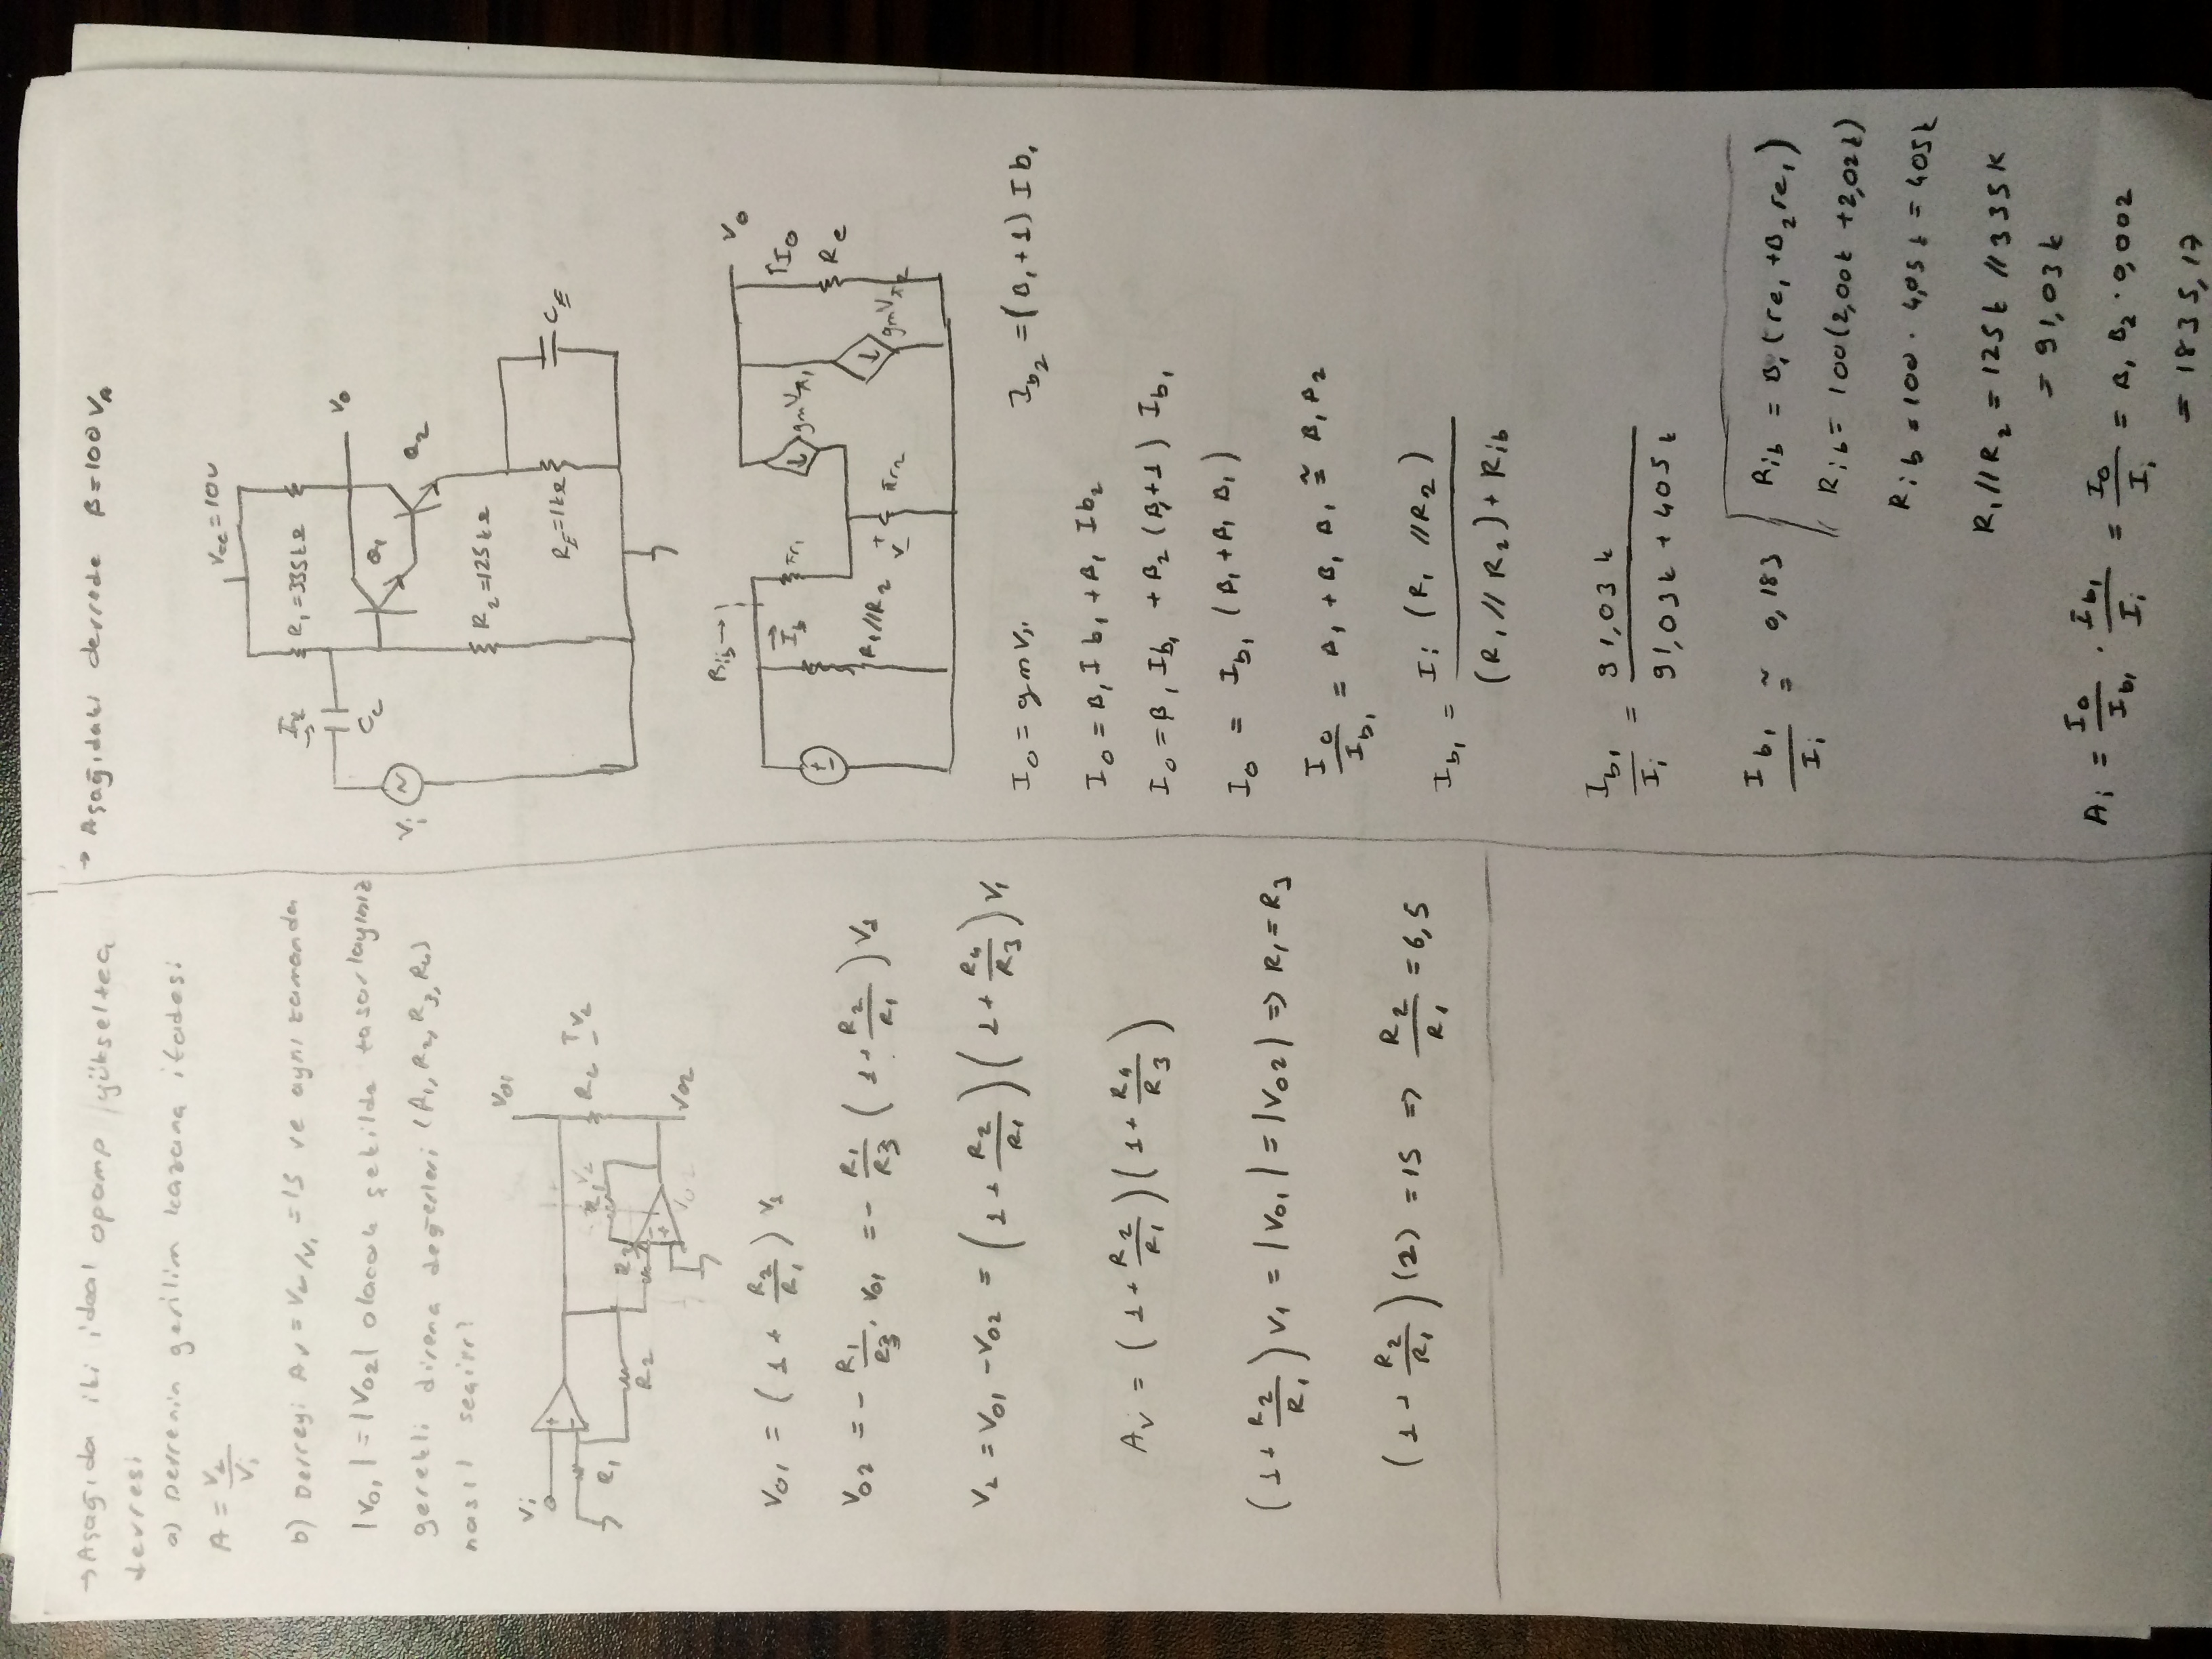 → Aşağıda iki ideal opamp yükselteç
devresi
a) Devrenin gerilim kazanç ifadesi
A = VL / Vi
b) Devreyi Av = VL/V1 = 15 ve aynı zamanda
|V01| = |V02| olacak şekilde tasarlayınız
gerekli direnç değerleri (R1, R2, R3, R4)
nasıl seçilir?
Vi
V01
R1
R2
R3
RL
VL
V02
V01 = (1 + R2/R1) V1
V02 = - R1/R3 . V01 = - R1/R3 (1 + R2/R1) V1
VL = V01 - V02 = (1 + R2/R1)(1 + R4/R3) V1
Av = (1 + R2/R1)(1 + R4/R3)
(1 + R2/R1) V1 = |V01| = |V02| => R1 = R3
(1 + R2/R1)(2) = 15 => R2/R1 = 6,5
→ Aşağıdaki devrede β = 100 VA
Vcc = 10V
R1 = 335kΩ
Cc
Vi
Vo
Q1
Q2
R2 = 125kΩ
RE = 1kΩ
CE
Rib →
Vo
Ib
πr1
gmVπ1
Io
Rc
R1//R2
πr2
gmVπ2
Io = gmVπ
Ib2 = (β1 + 1) Ib1
Io = β1 Ib1 + β1 Ib2
Io = β1 Ib1 + β2 (β1 + 1) Ib1
Io = Ib1 (β1 + β1 β1)
Io / Ib1 = β1 + β1 β1 ≅ β1 β2
Ib1 = Ii (R1 // R2) / (R1 // R2) + Rib
Ib1 / Ii = 91,03k / 91,03k + 405k
Ib1 / Ii ≅ 0,183
Rib = β1 (re1 + β2 re1)
Rib = 100 (2,00k + 2,02k)
Rib = 100 . 4,05k = 405k
R1 // R2 = 125k // 335K
= 91,03k
Ai = Io/Ib1 . Ib1/Ii = Io/Ii = β1 β2 . 0,002
= 1835,17